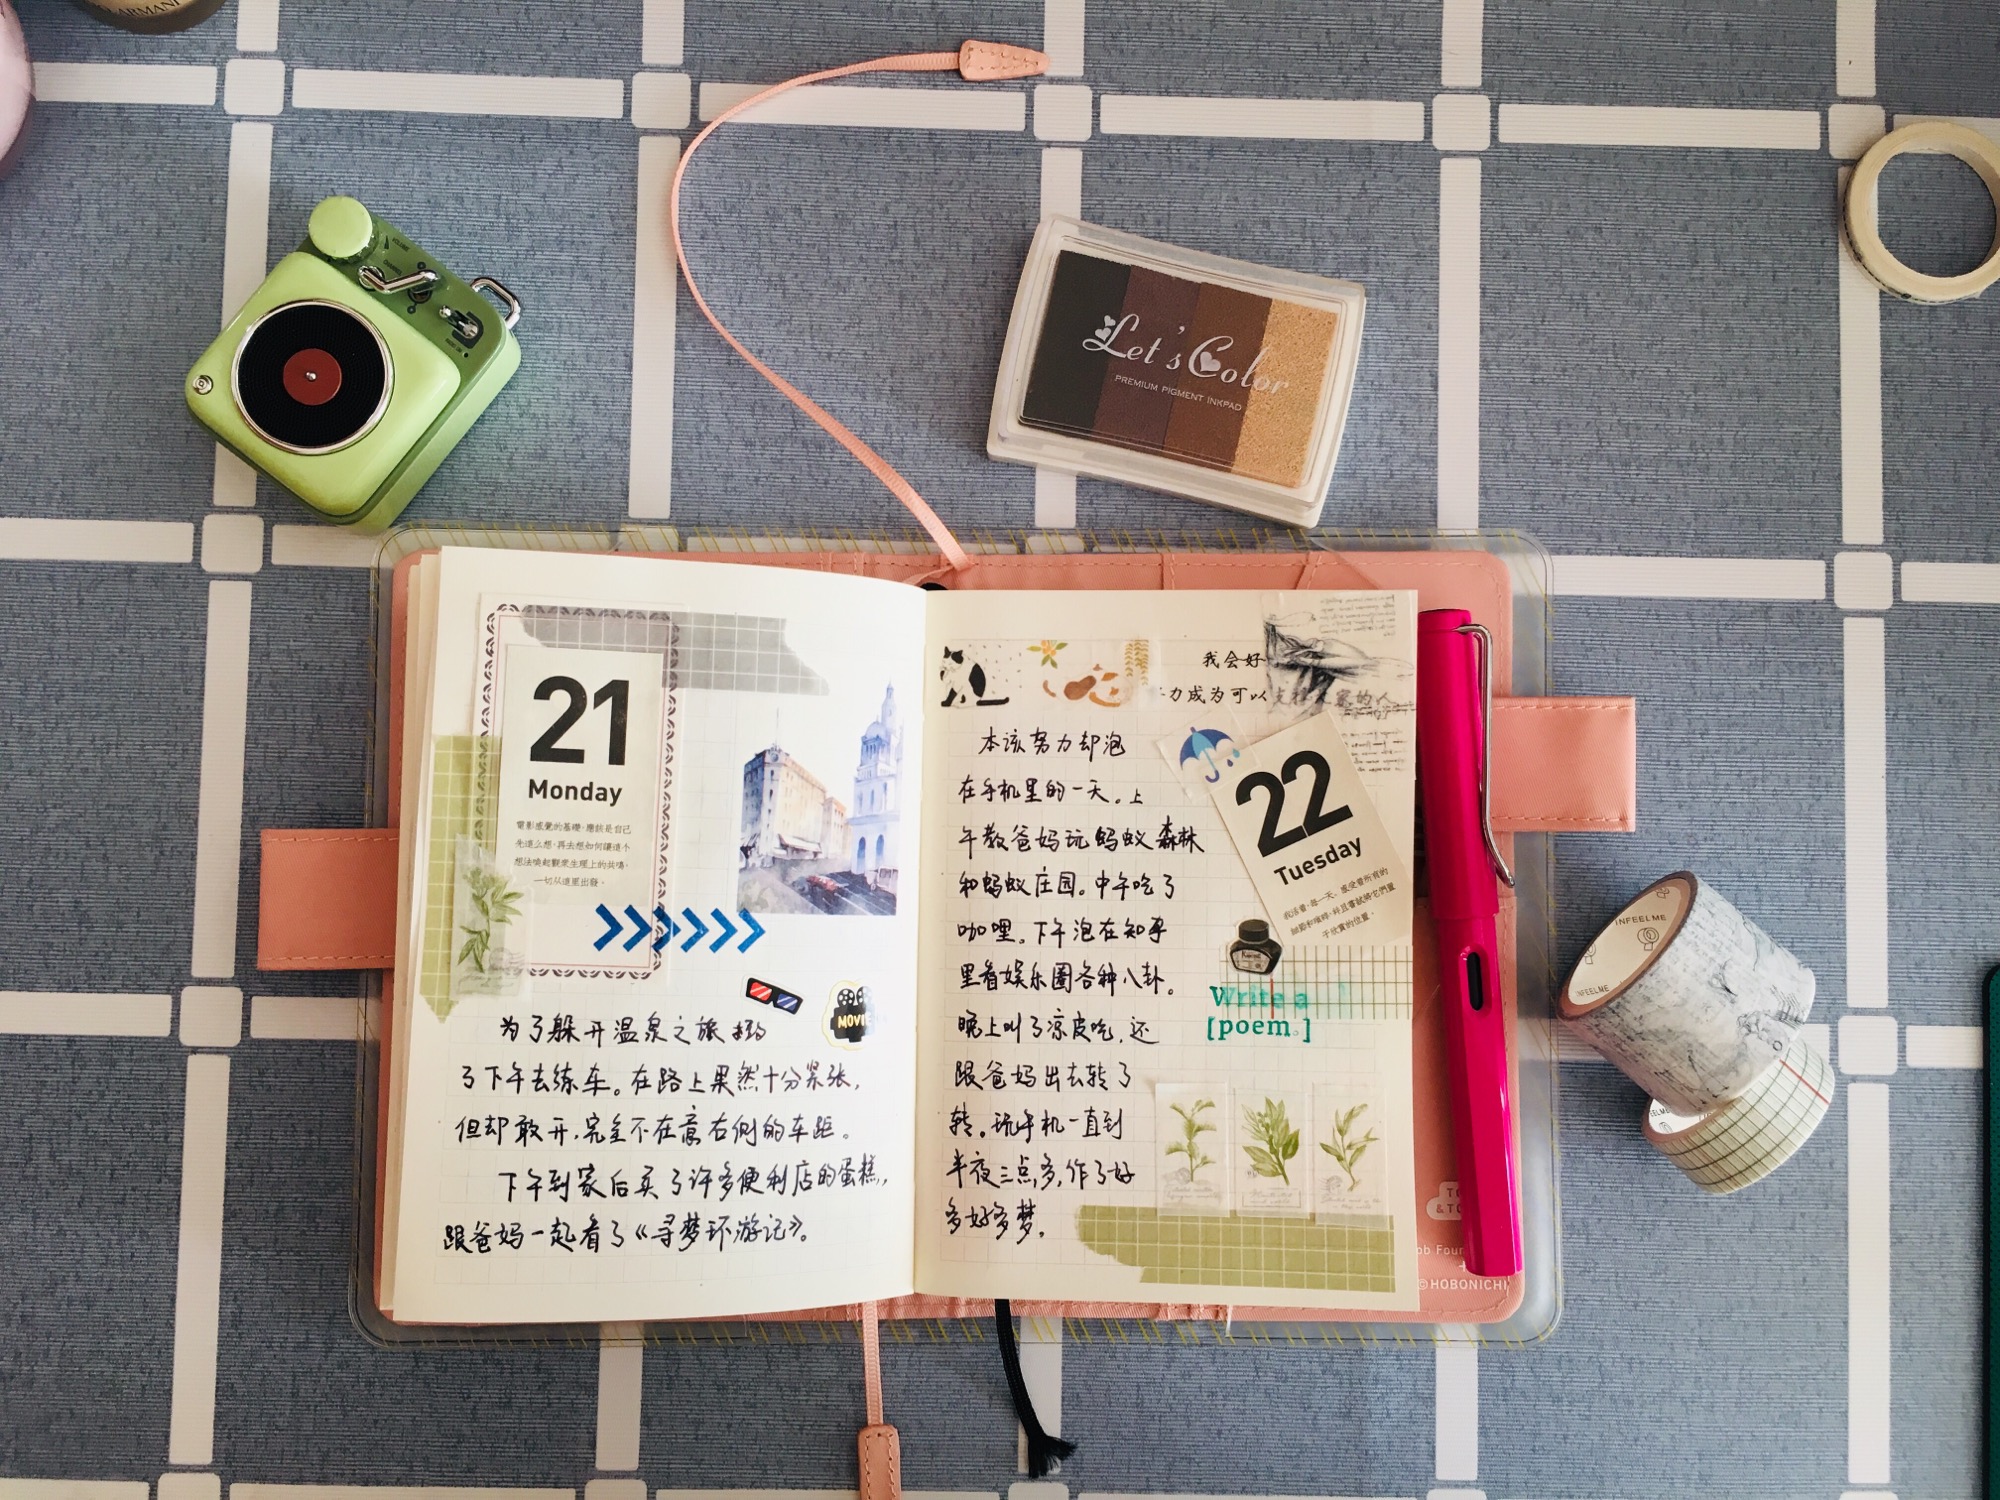 ARMANI
VOLUME
CHANNEL
Let's Color
PREMIUM PIGMENT INKPAD
21
Monday
電影感覺的基礎,應該是自己
先這么想,再去想如何讓這个
想法喚起觀眾生理上的共鳴,
一切从這里出發。
MOVIE
为了躲开温泉之旅
了下午去练车。在路上果然十分紧张,
但却敢开,完全不在意右侧的车距。
下午到家后买了许多便利店的蛋糕,
跟爸妈一起看了《寻梦环游记》。
我会好
力成为可以
的人
本该努力却泡
在手机里的一天。上
午教爸妈玩蚂蚁森林
和蚂蚁庄园。中午吃了
咖哩。下午泡在知乎
里看娱乐圈各种八卦。
晚上叫了凉皮吃,还
跟爸妈出去转了
转。玩手机一直到
半夜三点多,作了好
多好多梦。
22
Tuesday
我活着,每一天,感受着所有的
細節和瞬時,并且嘗試將它們置
于欣賞的位置。
Write a
[poem。]
©HOBONICHI
INFEELME
INFEELME